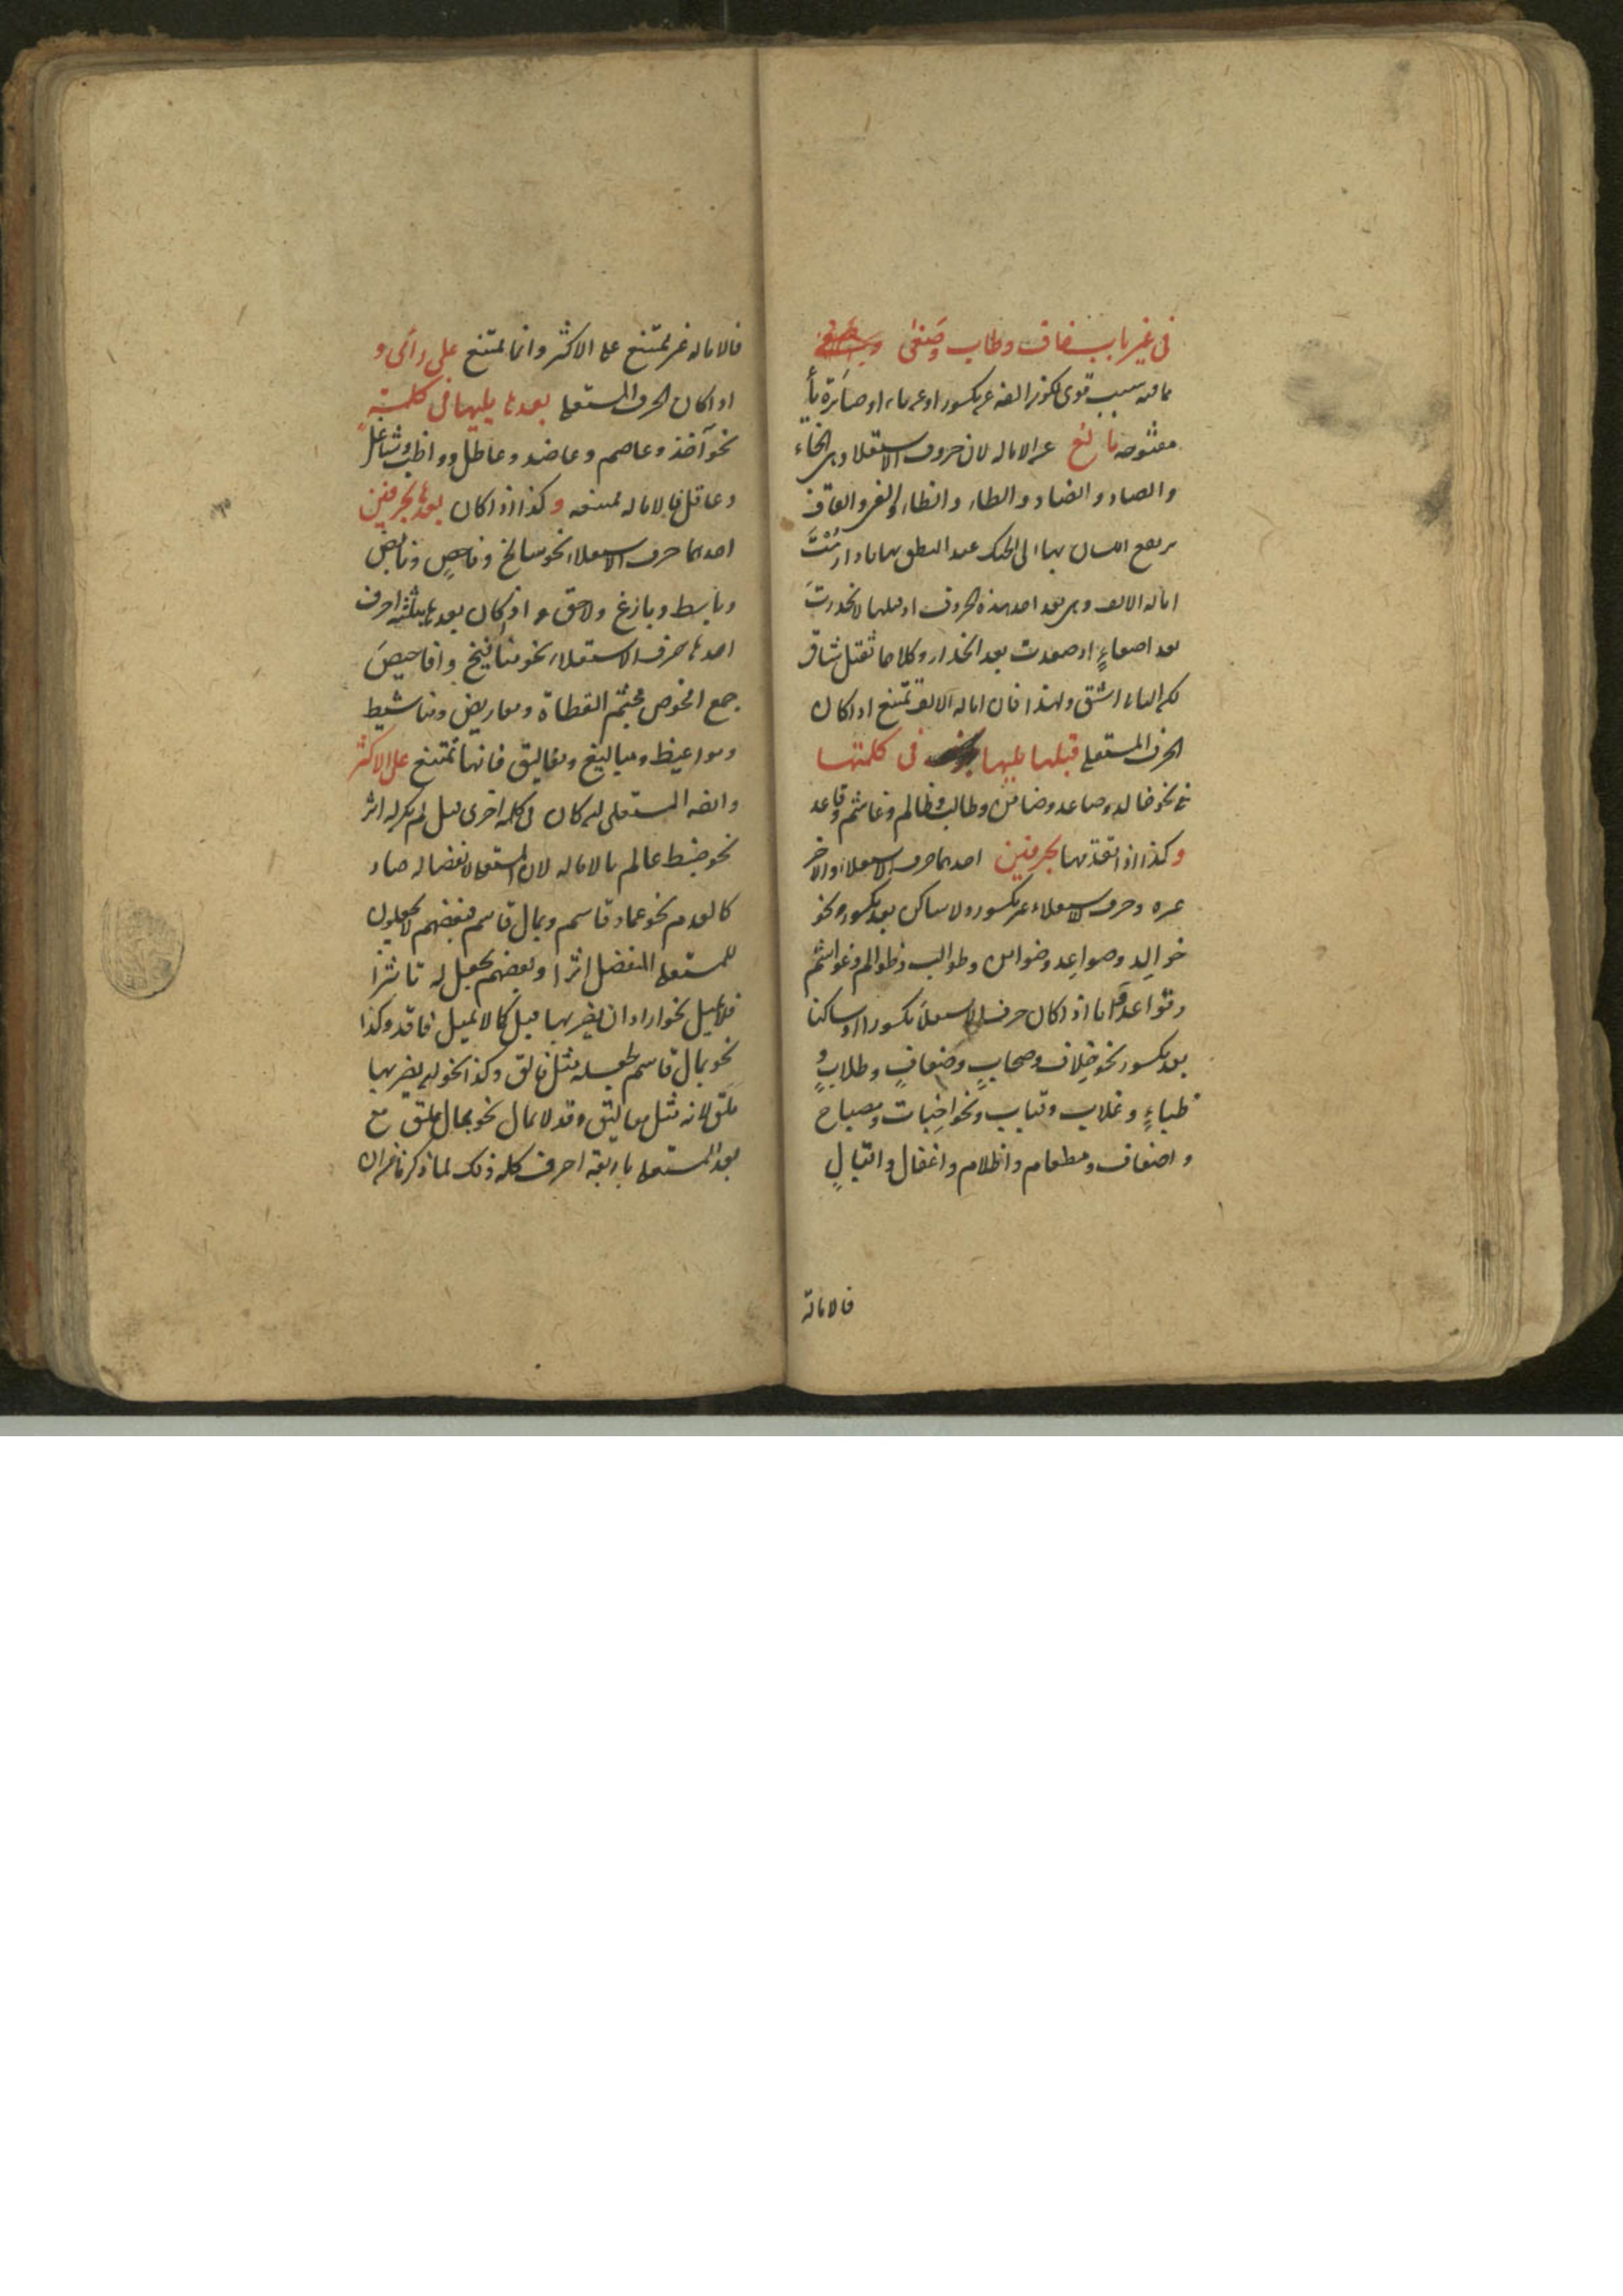 في غير باب خاف وطاب وصغى
مما فيه سبب قوى لكون الفه عن مكسور او عن ياء او صائرة يأ
مفتوحه مانع عن الاماله لان حروف الاستعلا وهى الخاء
والصاد والضاد والطاء والظاء والغين والقاف
يرتفع اللسان بها الى الحنك عند النطق بها فاذا اردت
امالة الالف وهى بعد احد هذه الحروف او قبلها لانحدرت
بعد اصعاءٍ او صعدت بعد انحدار وكلاهما ثقيل شاق
لكن الثانى اشق ولهذا فان اماله الالف تمتنع اذا كان
الحرف المستعلى قبلها يليها في كلمتها
في نحو خالد وصاعد وضامن وطالب وظالم وغاشم وقاعد
وكذا اذا تقدمها بحرفين احدهما حرف الاستعلا والاخر
غيره وحرف الاستعلاء غير مكسور ولا ساكن بعد مكسور نحو
خوالد وصواعد وضوامن وطوالب وظوالم وغواشم
وقواعد واما اذا كان حرف الاستعلا مكسورا او ساكنا
بعد مكسور نحو خلاف وصحابٍ وضعافٍ وطلابٍ و
ظباءٍ وغلاب وقباب ونحو اخبات ومصباح
واضعاف ومطعام واظلام واغفال واقبالٍ
فالامالة
فالاماله غير ممتنع على الاكثر وانما يمتنع على رائى و
اذا كان الحرف المستعلى بعدها يليها في كلمته
نحو آخذ وعاصم وعاضد وعاطل وواظب وشاغل
وعاقل فالاماله ممتنعه وكذا اذا كان بعدها بحرفين
احدهما حرف الاستعلا نحو سالخ وفاحصٍ ونابض
وباسط وبازغ ولاحق و اذا كان بعدها بثلثه احرف
احدها حرف الاستعلاء نحو منافيخ وافاحيصَ
جمع افحوص مجثم القطاة ومعاريض ومناشيط
ومواعيظ ومباليغ ومفاليق فانها تمتنع على الاكثر
والفه المستعلى ان كان في كلمه اخرى قبل لم يكن له اثر
نحو ضبط عالم بالاماله لان المستعلى لانفصاله صار
كالعدم نحو عماد قاسم وبمال قاسم فبعضهم لا يجعلون
للمستعلى المنفصل اثرا وبعضهم يجعل له تاثيرًا
فلا يميل نحو اراد ان يضربها قبل كما لا يميل فاقد وكذا
نحو بمال قاسم يجعله مثل فالق وكذا نحو ان يضربها
ملق لانه مثل معاليق وقد لا يمال نحو بمال ملق مع
بعد المستعلى باربعة احرف كله ذلك لما ذكرنا من ان